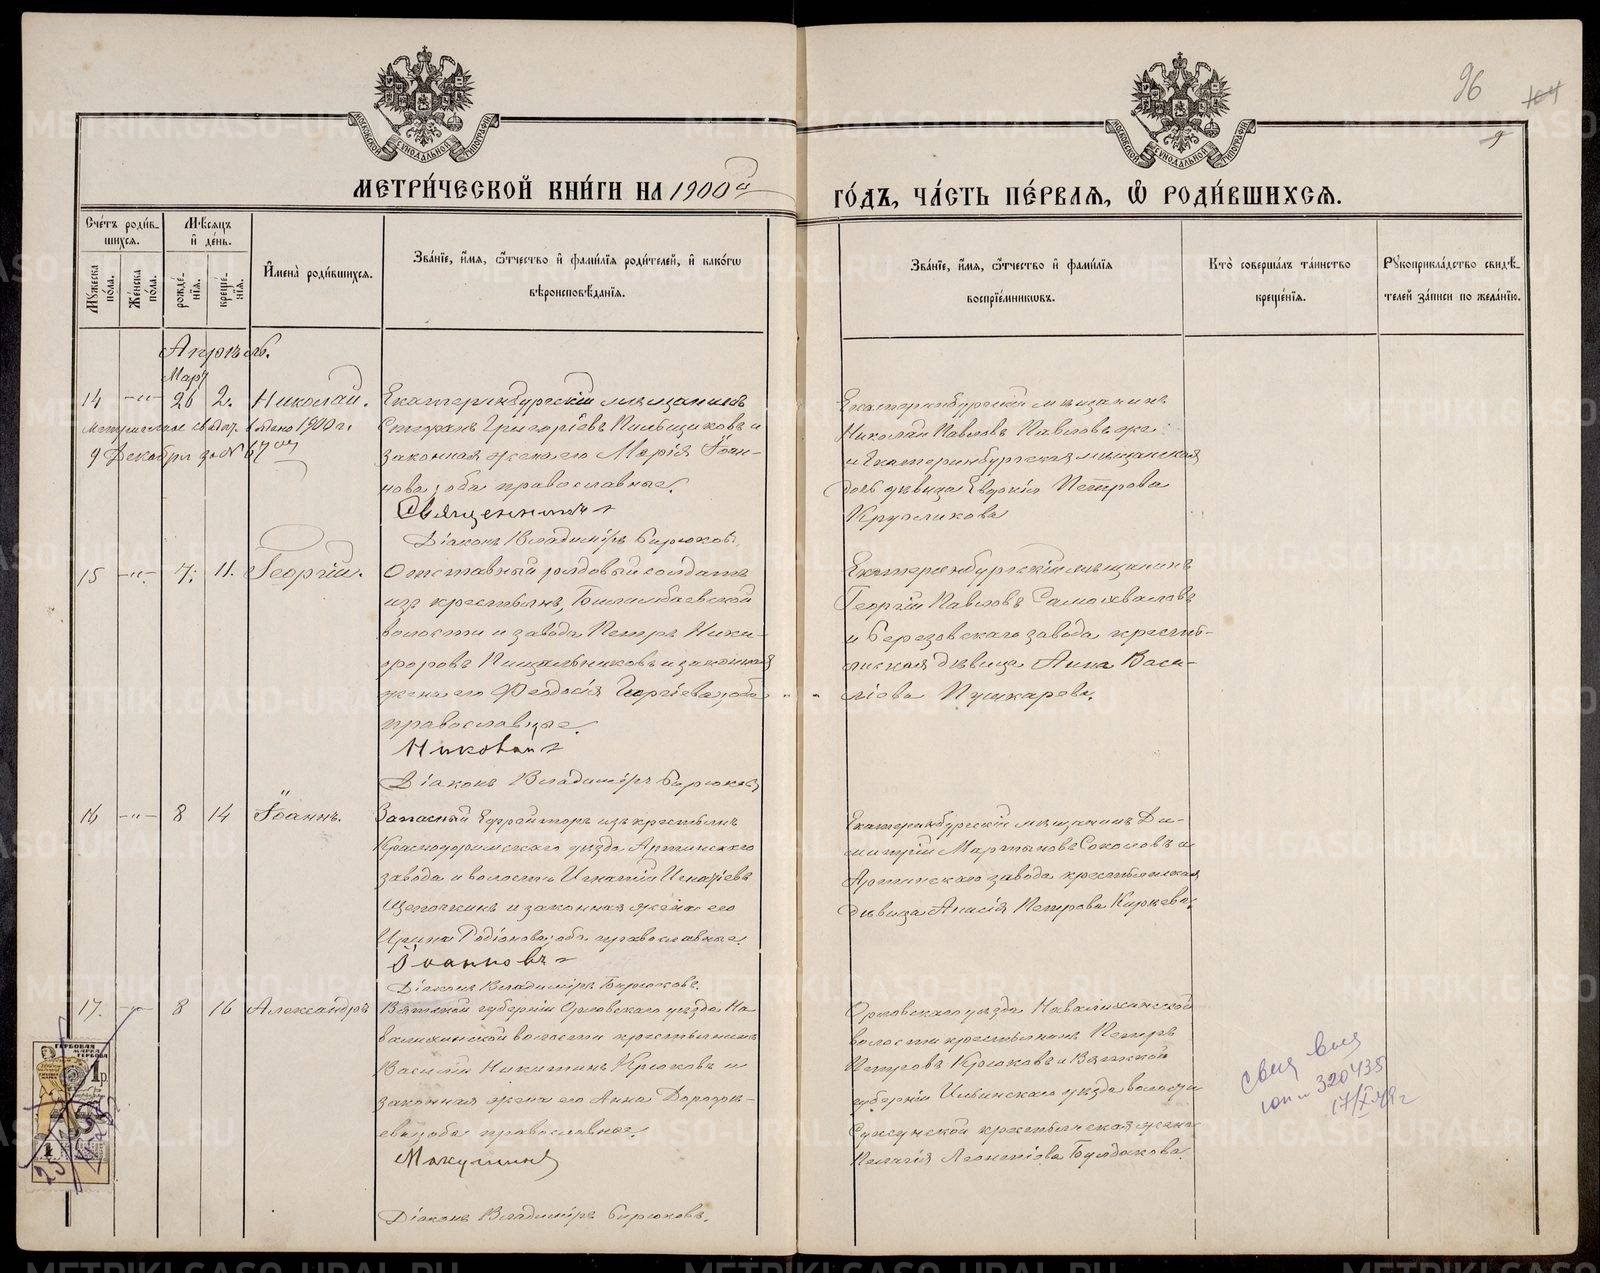 96
104
МЕТРИ́ЧЕСКОЙ КНИ́ГИ НА 1900й
ГО́ДЪ, ЧА́СТЬ ПЕ́РВАѦ, Ѽ РОДИ́ВШИХСѦ.
МОСКОВСКОЙ СѴНОДАЛЬНОЙ ТИПОГРАФІИ
МОСКОВСКОЙ СѴНОДАЛЬНОЙ ТИПОГРАФІИ
Сче́тъ роди́вшихся.
Мѣ́сяцъ и҆ де́нь.
И҆мена̀ роди́вшихся.
Зва́нїе, и҆́мя, ѻ҆́тчество и҆ фами́лїя роди́телей, и҆ како́гѡ
вѣроисповѣ́данїя.
Мꙋ́жеска по́ла.
Же́нска по́ла.
рожде́нїя.
креще́нїя.
Зва́нїе, и҆́мя, ѻ҆́тчество и҆ фами́лїя
воспрїе́мникѡвъ.
Кто̀ соверша́лъ та́инство
креще́нїя.
Рꙋкоприкла́дство свидѣ́телей
за́писи по жела́нїю.
Апрѣль.
Март
14 -"- 26 2. Николай.
Метрическое свид. выдано 1900 г.
9 Декабря за № 67
Екатеринбургскій мѣщанинъ
Стефанъ Григорьевъ Пильщиковъ и
законная жена его Марія Іоан-
нова, оба православные.
Священникъ
Діаконъ Владиміръ Бирюковъ.
Екатеринбургскій мѣщанинъ
Николай Павловъ Павловъ же
и Екатеринбургская мѣщанская
дочь дѣвица Евдокія Петрова
Кругликова
15 -"- 7. 11. Георгій.
Отставный рядовый солдатъ
изъ крестьянъ, Билимбаевской
волости и завода Петръ Ники-
форовъ Пищальниковъ и законная
жена его Феодосія Георгіева, оба
православные.
Діаконъ Владиміръ Бирюковъ
Екатеринбургскій мѣщанинъ
Георгій Павловъ Самохваловъ
и Березовскаго завода крестьянская
дѣвица Анна Васи-
ліева Пушкарева.
16 -"- 8 14 Іоаннъ.
Запасный Ефрейторъ изъ крестьянъ
Красноуфимскаго уѣзда Артинскаго
завода и волости Игнатій Игнатьевъ
Щепочкинъ и законная жена его
Ирина Родіонова, оба православные.
Іоанновъ
Діаконъ Владиміръ Бирюковъ.
Екатеринбургскій мѣщанинъ Ди-
митрій Мартыновъ Соколовъ и
Артинскаго завода крестьянская
дѣвица Анисія Петрова Кирѣева.
17. 8 16 Александръ
Вятской губерніи Орловскаго уѣзда На-
валихинской волости крестьянинъ
Василій Никитинъ Крюковъ и
законная жена его Анна Дорофѣ-
ева, оба православные.
Макушинъ
Діаконъ Владиміръ Бирюковъ.
Орловскаго уѣзда Навалихинской
волости крестьянинъ Петръ
Петровъ Крюковъ и Вятской
губерніи уѣзда волости
крестьянская жена
Пелагія Леонтіева Булдакова.
ГЕРБОВАЯ МАРКА
1 р.
320435
METRIKI.GASO-URAL.RU